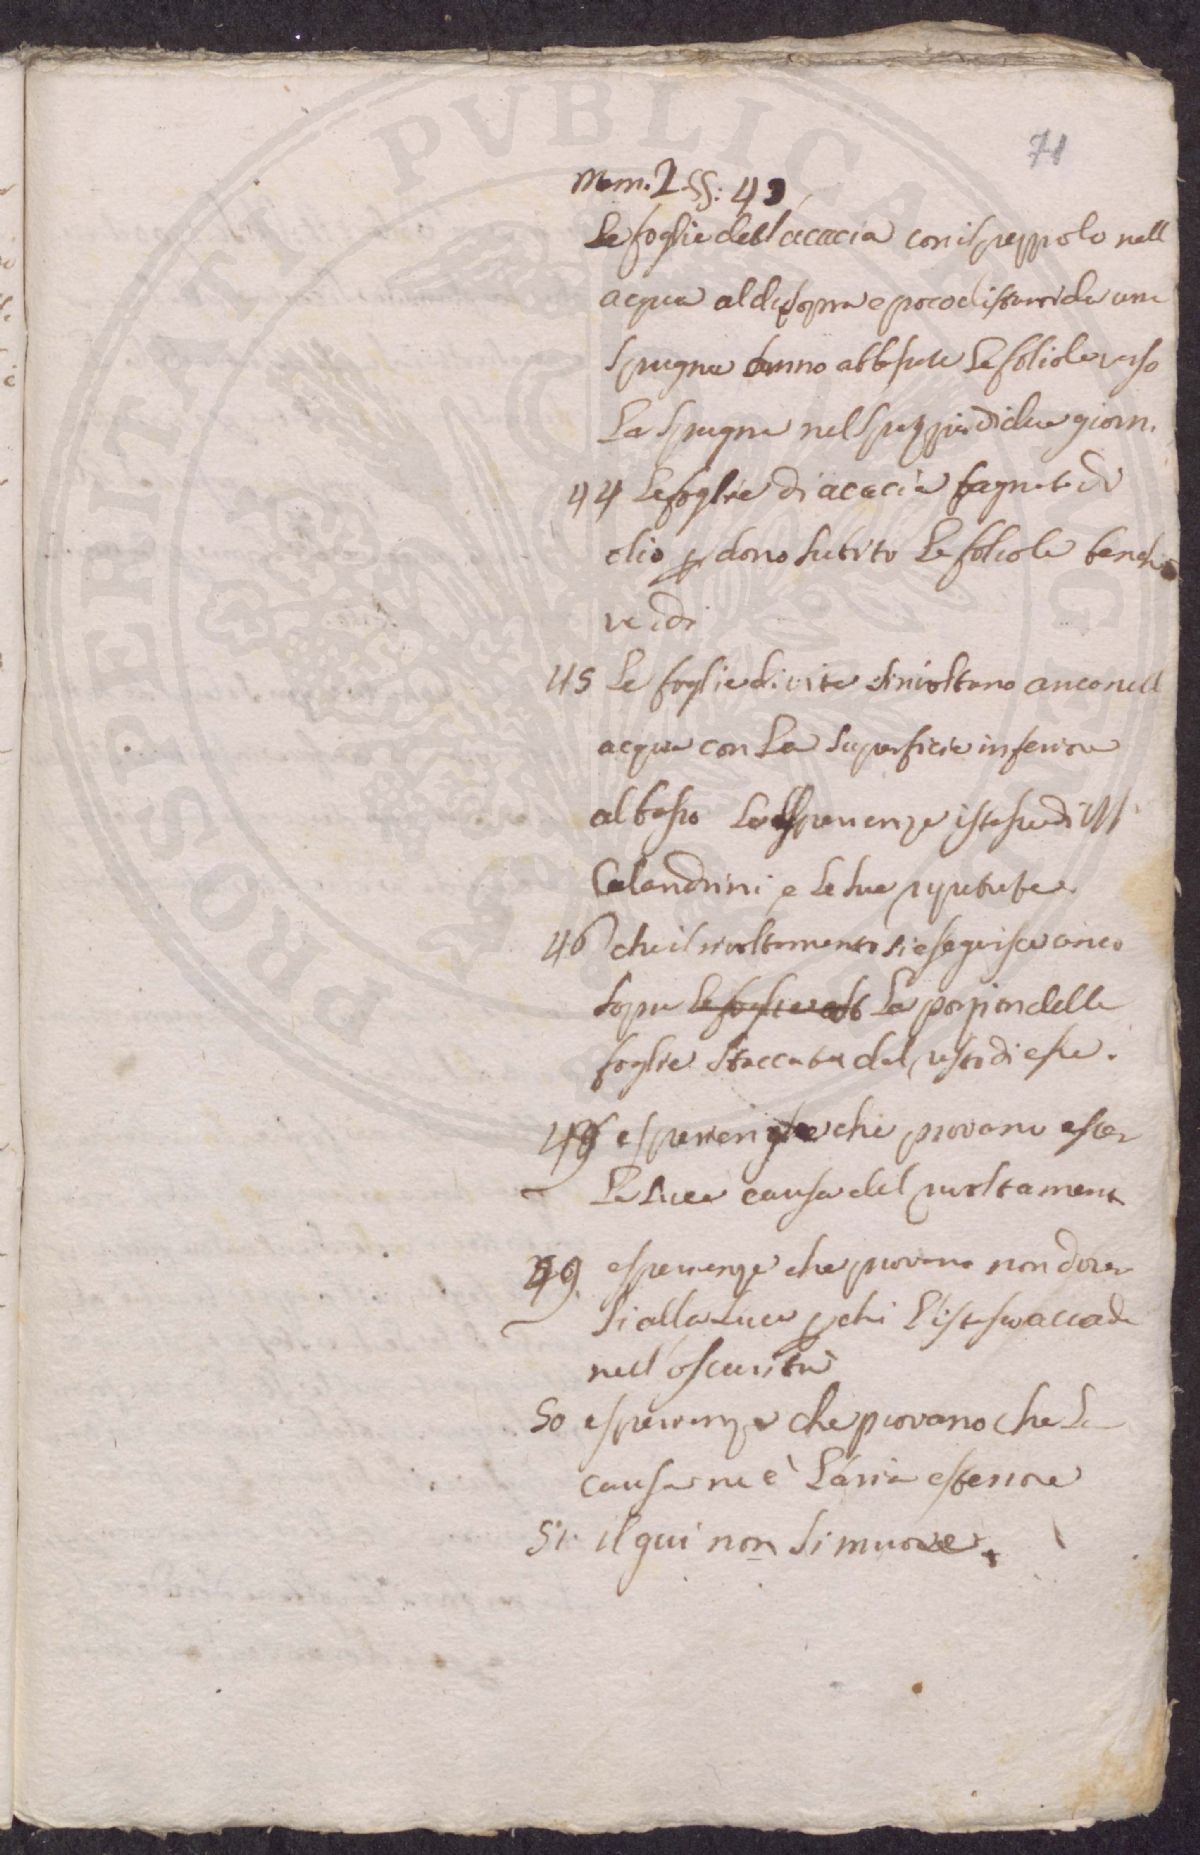 71
Mem. 2 §§: 43
Le foglie dell'acacia con il peppolo nell
acqua al disopra e poco distanti da una
spugna anno abbassate le foliole verso
La spugna nel spazzio di due giorn.
44 Le foglie di acacia bagnate di
olio p dono subito le foliole benche
verdi
45 Le foglie di vite si rivoltano anco nell
acqua con La superficie inferiore
al basso Le esperienze istesse di
Calandrini e le sue
46 che il rivoltamento si eseguisce anco
sopra le foglie La porzion delle
foglie staccata dal resto di esse.
49 esperienze che provano esser
La Luce causa del rivoltament
49. esperienze che provano non dover
si alla Luce p che l'istesso accade
nell'oscurità
50 esperienze che provano che La
causa ne è L'aria esteriore
51. il qui non si muove.
PVBLICAE
PROSPERITATI